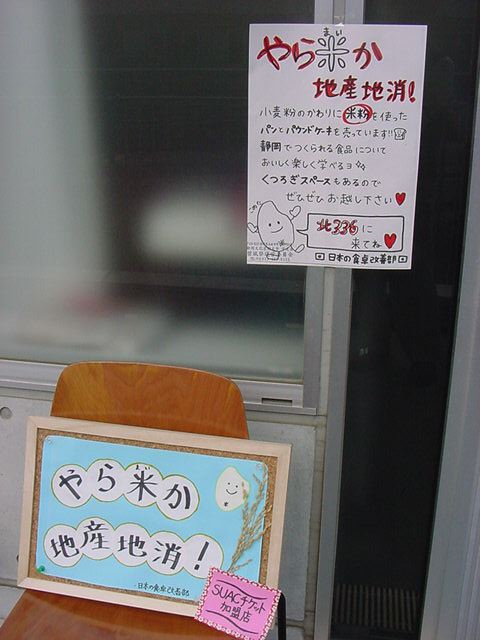 まい
やら米か
地産地消!
小麦粉のかわりに米粉を使った
パンとパウンドケーキを売っています!!
静岡でつくられる食品について
おいしく楽しく学べるヨ
くつろぎスペースもあるので
ぜひぜひお越し下さい♥
北336に
来てね♥
日本の食卓改善部
まい
やら米か
地産地消!
日本の食卓改善部
SUACチケット
加盟店